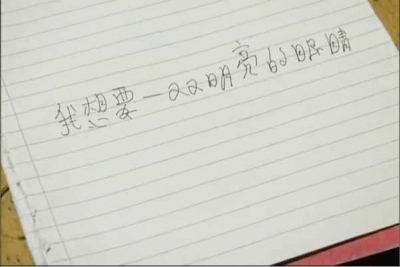 我想要一双明亮的眼睛